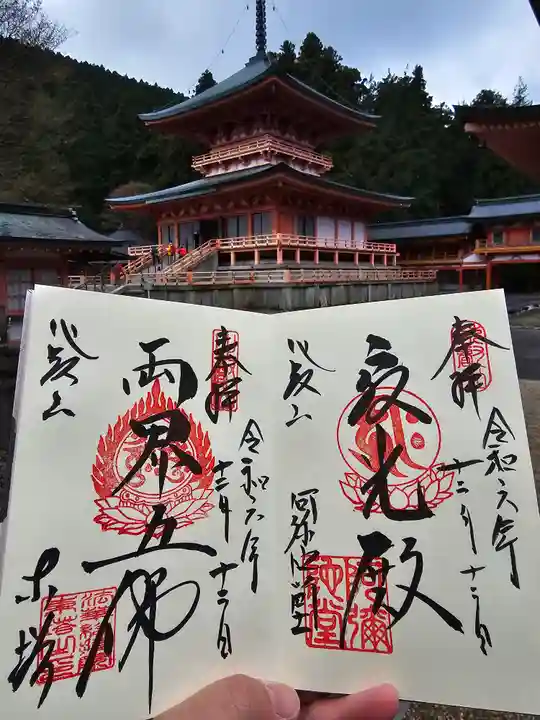 奉拝
令和六年
十二月十二日
光殿
比叡山
阿弥陀堂
阿彌陀堂
奉拝
令和六年
十二月十二日
両界五佛
比叡山
東塔